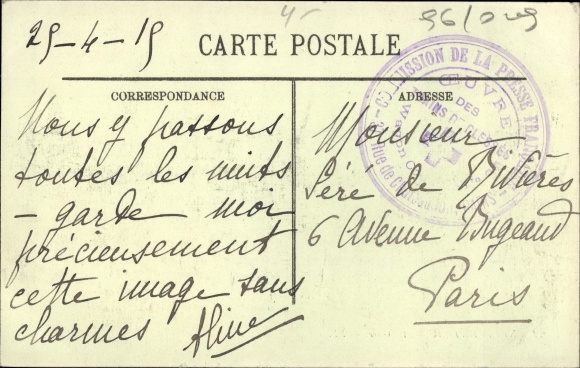 4-
96/029
29-4-15
CARTE POSTALE
CORRESPONDANCE
ADRESSE
COMMISSION DE LA PRESSE FRAN
ŒUVRE
DES
Nous y passons
toutes les nuits
- garde moi
précieusement
cette image sans
charmes Aline
Monsieur
Séré de Rivières
6 Avenue Bugeaud
Paris